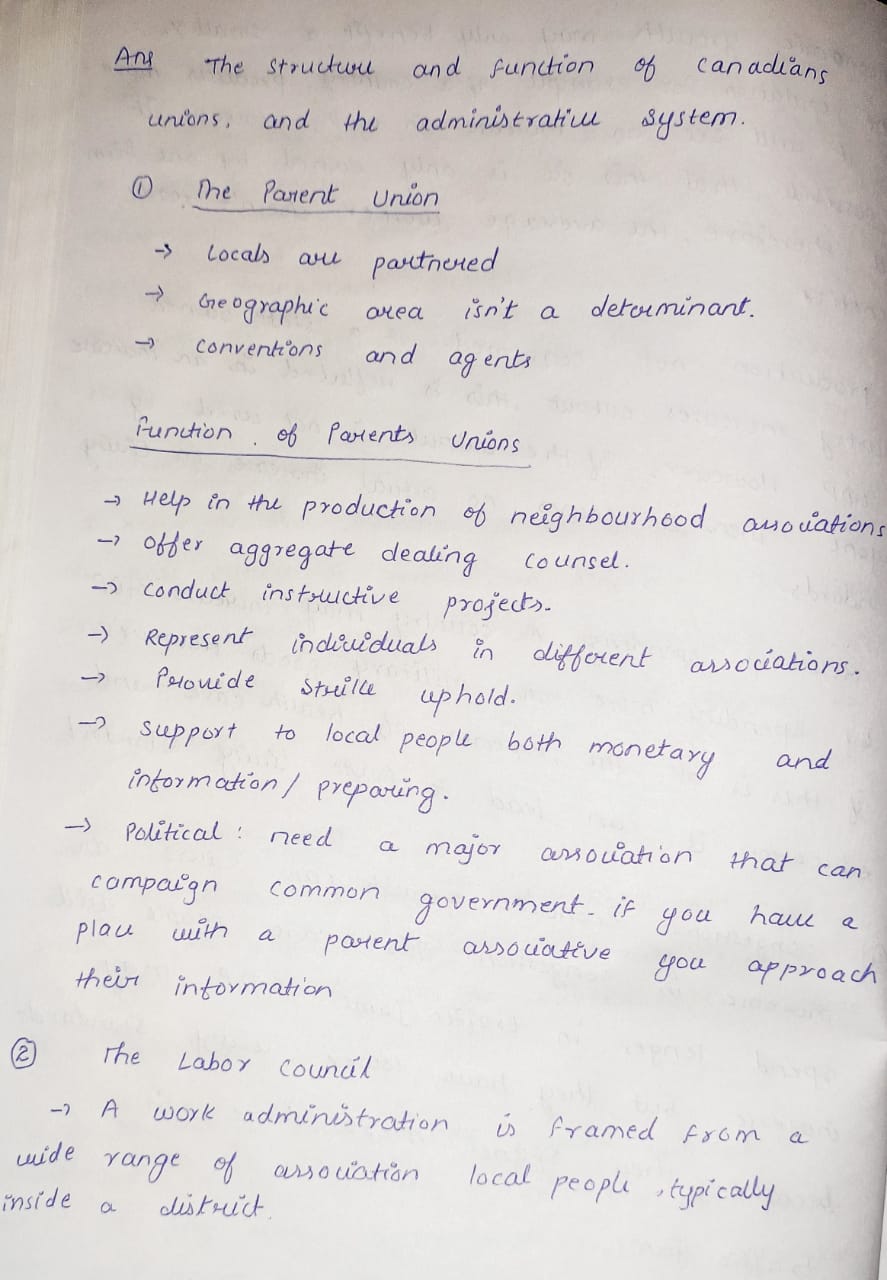 Ans The structure and function of canadians
unions, and the administrative system.
① The Parent Union
→ Locals are partnered
→ Geographic area isn't a determinant.
→ conventions and agents
Function of Parents Unions
→ Help in the production of neighbourhood associations
→ offer aggregate dealing counsel.
→ conduct instructive projects.
→ Represent individuals in different associations.
→ Provide strike uphold.
→ support to local people both monetary and
information / preparing.
→ Political : need a major association that can
campaign common government. if you have a
place with a parent associative you approach
their information
② The Labor council
→ A work administration is framed from a
wide range of association local people, typically
inside a district.